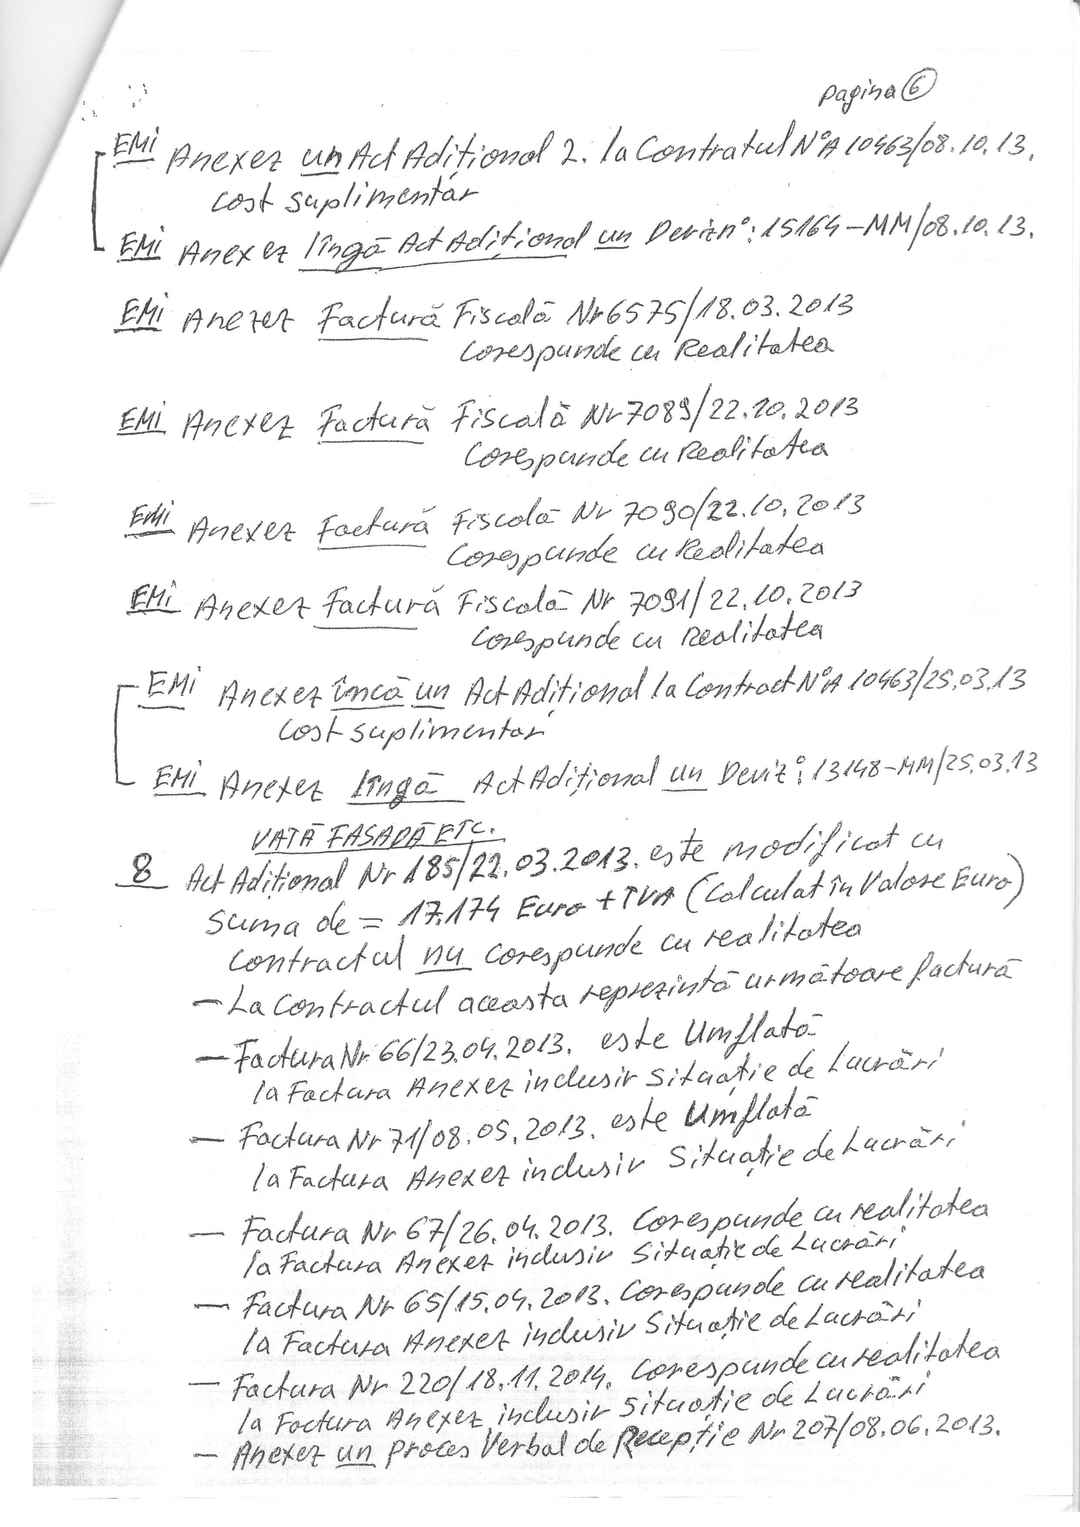 pagina 6
EMi Anexez un Act Adițional 2. la Contratul N°A 10463/08.10.13.
cost suplimentar
EMi Anexez lîngă Act Adițional un Deviz n°: 15164-MM/08.10.13.
EMi Anexez Factură Fiscală Nr 6575/18.03.2013
Corespunde cu Realitatea
EMi Anexez Factură Fiscală Nr 7089/22.10.2013
Corespunde cu Realitatea
EMi Anexez Factură Fiscală Nr 7090/22.10.2013
Corespunde cu Realitatea
EMi Anexez Factură Fiscală Nr 7091/22.10.2013
Corespunde cu Realitatea
EMi Anexez încă un Act Adițional la Contract N°A 10463/25.03.13
Cost suplimentar
EMi Anexez lîngă Act Adițional un Deviz: 13148-MM/25.03.13
VATĂ FASADĂ ETC.
8 Act Adițional Nr 185/22.03.2013. este modificat cu
suma de = 17.174 Euro + TVA (Calculat în Valoare Euro)
Contractul nu corespunde cu realitatea
- La Contractul aceasta reprezintă următoare factură
- Factura Nr 66/23.04.2013. este Umflată
la Factura Anexez inclusiv Situație de Lucrări
- Factura Nr 71/08.05.2013. este Umflată
la Factura Anexez inclusiv Situație de Lucrări
- Factura Nr 67/26.04.2013. Corespunde cu realitatea
la Factura Anexez inclusiv Situație de Lucrări
- Factura Nr 65/15.04.2013. Corespunde cu realitatea
la Factura Anexez inclusiv Situație de Lucrări
- Factura Nr 220/18.11.2014. Corespunde cu realitatea
la Factura Anexez inclusiv Situație de Lucrări
- Anexez un proces Verbal de Recepție Nr 207/08.06.2013.